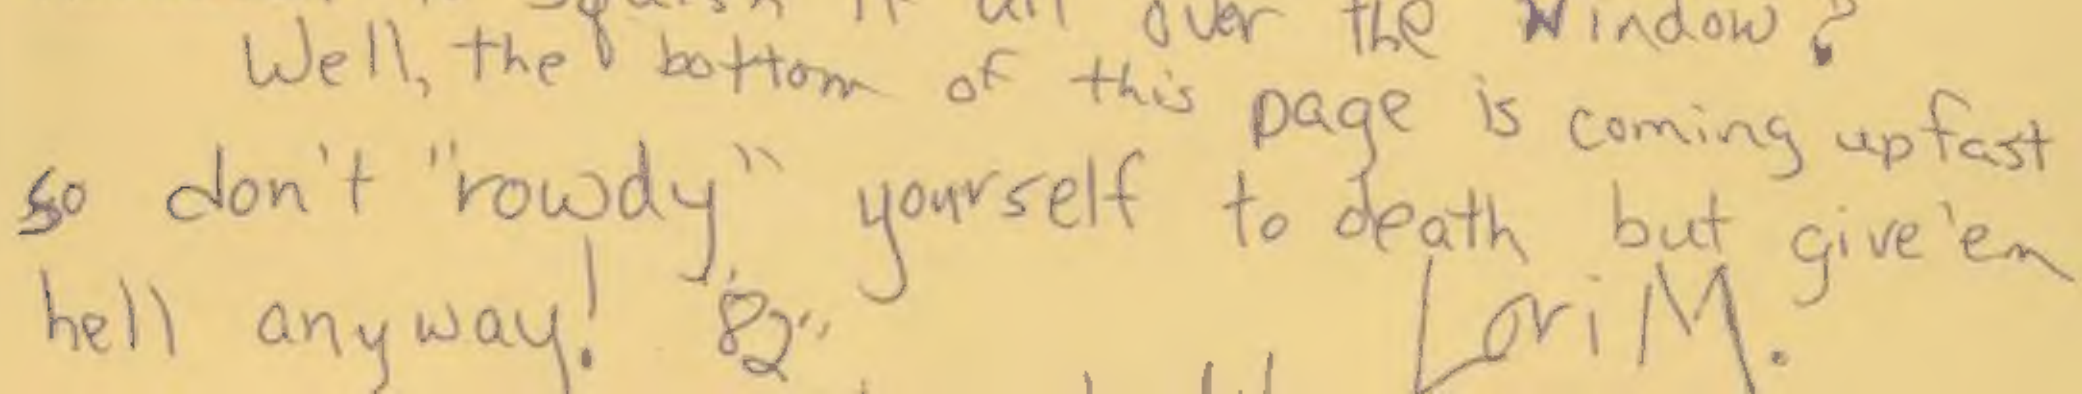 squish it all over the window?
Well, the bottom of this page is coming up fast
so don't "rowdy" yourself to death but give'em
hell anyway! '82"
Lori M.